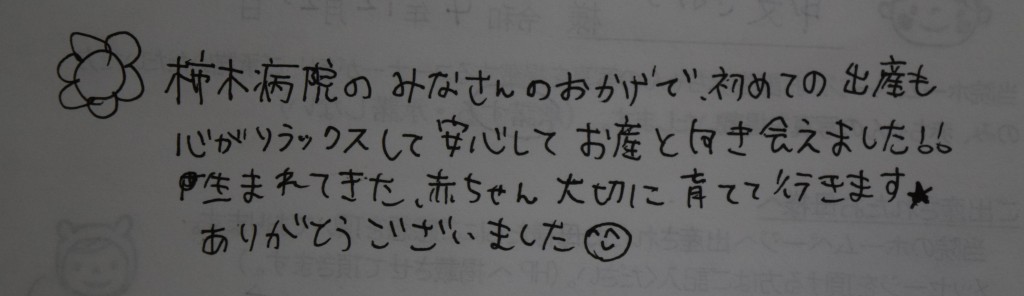 柿木病院のみなさんのおかげで、初めての出産も
心がリラックスして安心してお産と向き会えました!!
生まれてきた、赤ちゃん大切に育てて行きます★
ありがとうございました